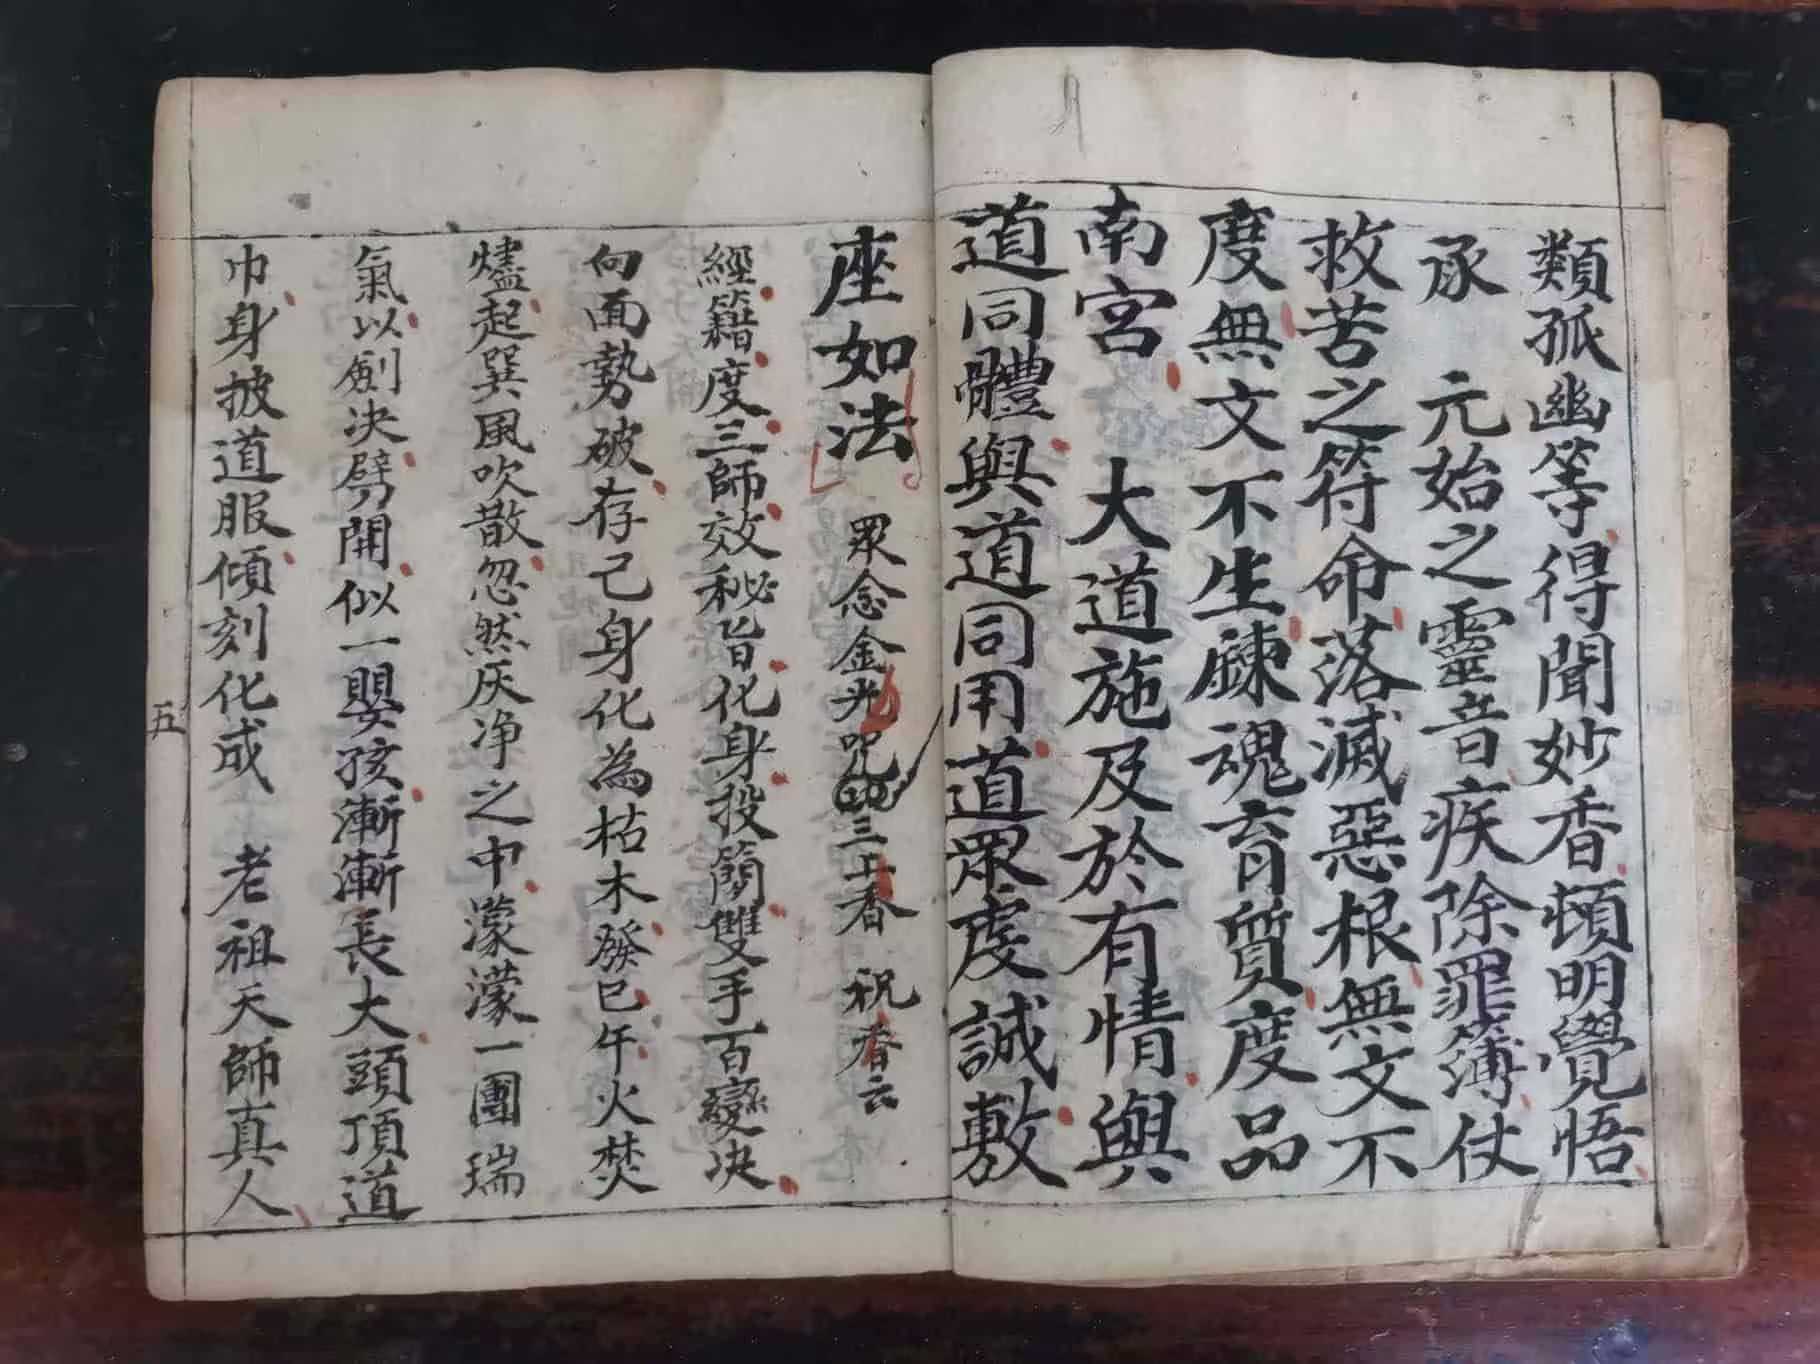 類孤幽等得聞妙香頓明覺悟
承 元始之靈音疾除罪簿仗
救苦之符命落滅惡根無文不
度無文不生鍊魂育質度品
南宮 大道施及於有情與
道同體與道同用道眾虔誠敷
座如法 眾念金光咒 三上香 祝香云
經籍度三師效秘旨化身投簡雙手一百變决
向面勢破存己身化為枯木發巳午火焚
燼起巽風吹散忽然灰净之中濛濛一團瑞
氣以劍决劈開似一嬰孩漸漸長大頭頂道
巾身披道服傾刻化成 老祖天師真人
五